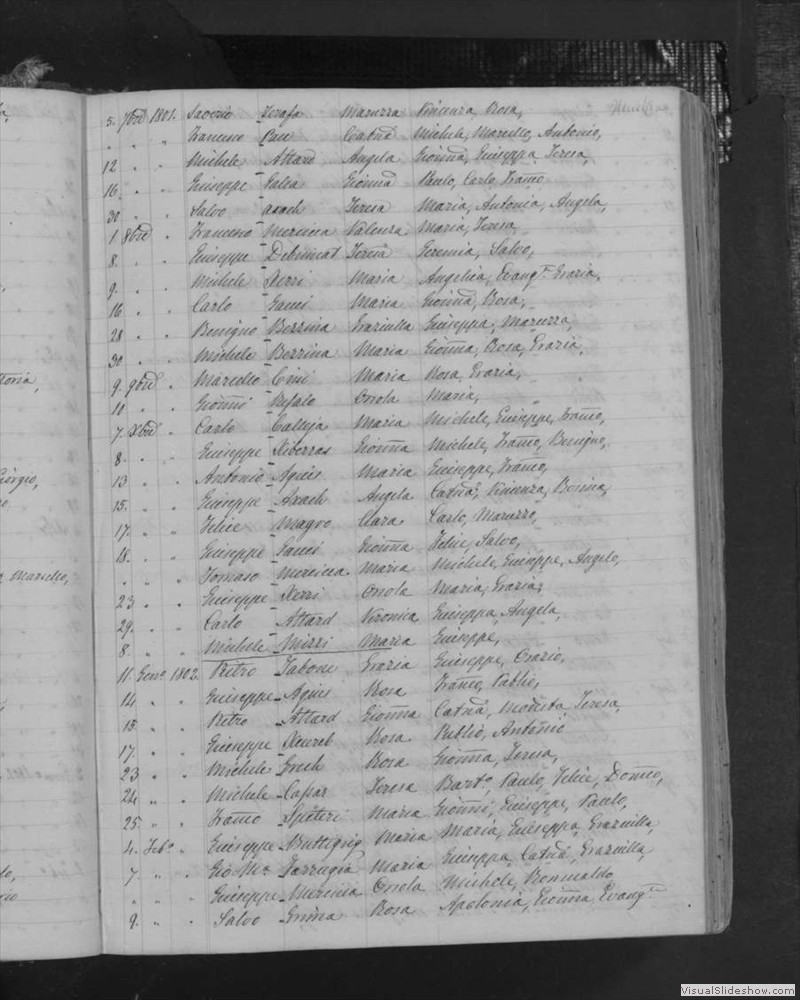 5. 7bre 1801. Saverio Zerafa Maruzza Vincenza, Rosa,
" " " Franceso Pau Catna Michele, Marcello, Antonio,
12 " " Michele Attard Angela Gionna, Giuseppa, Teresa,
16. " " Giuseppe Galea Gionna Paulo, Carlo, Franco
30 " " Salvo Axach Teresa Maria, Antonia, Angela,
1. 8bre " Franceso Mercieca Valenza Maria, Teresa,
8. " " Giuseppe Debrincat Teresa Geremia, Salvo,
9. " " Michele Xerri Maria Angelica, Evangta Grazia,
16 " " Carlo Gauci Maria Gionna, Rosa,
28 " " Benigno Bezzina Graziulla Giuseppa, Maruzza,
30 " " Michele Bezzina Maria Gionna, Rosa, Grazia,
9. 9bre " Marcello Cini Maria Rosa, Grazia,
10 " " Gionni Refalo Orsola Maria,
7. Xbre " Carlo Calleja Maria Michele, Giuseppe, Franco,
8. " " Giuseppe Xiberras Gionna Michele, Franco, Benigno,
13 " " Antonio Agius Maria Giuseppe, Franco,
15. " " Giuseppe Axach Angela Catna, Vincenza,
17. " " Felice Magro Clara Carlo, Maruzzo,
18. " " Giuseppe Gauci Gionna Felice, Salvo,
" " " Tomaso Mercieca Maria Michele, Giuseppe, Angelo,
23 " " Giuseppe Xerri Orsola Maria, Grazia,
29. " " Carlo Attard Veronica Giuseppa, Angela,
8. " " Michele Mizzi Maria Giuseppe,
11. Genro 1802. Pietro Tabone Grazia Giuseppe, Orazio,
14 " " Giuseppe Agius Rosa Franco, Publio,
15. " " Pietro Attard Gionna Catna, Modesta, Teresa,
17. " " Giuseppe Xuereb Rosa Publio, Antonio
23 " " Michele Grech Rosa Gionna, Teresa,
24 " " Michele Capar Teresa Barto, Paulo, Felice, Domco,
25. " " Franco Spiteri Maria Gionni, Giuseppe, Paulo,
4. Febo " Giuseppe Buttigieg Maria Maria, Giuseppa, Graziulla,
7 " " Gio Ma Farrugia Maria Giuseppa, Catna, Graziulla,
" " " Giuseppe Mercieca Orsola Michele, Romualdo
9. " " Salvo Grima Rosa Apolonia, Gionna, Evangta
Marcello,
Giorgio,
VisualSlideshow.com